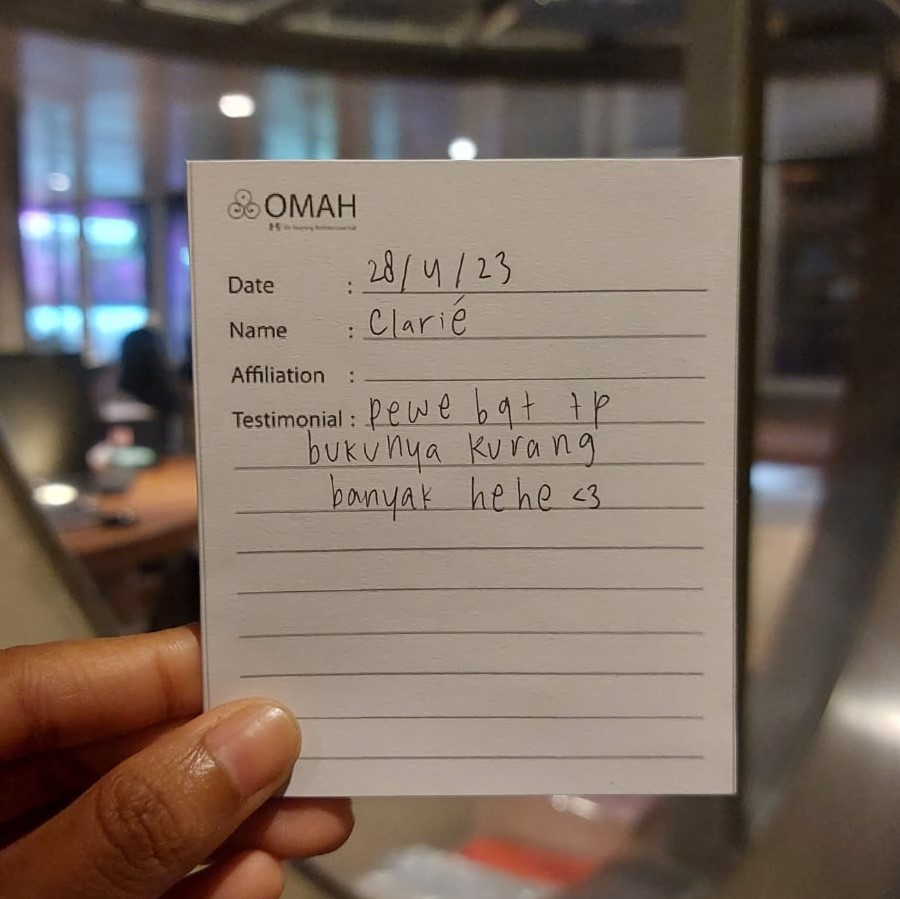 OMAH
Date : 28/4/23
Name : Clarié
Affiliation :
Testimonial : pewe bgt tp
bukunya kurang
banyak hehe <3